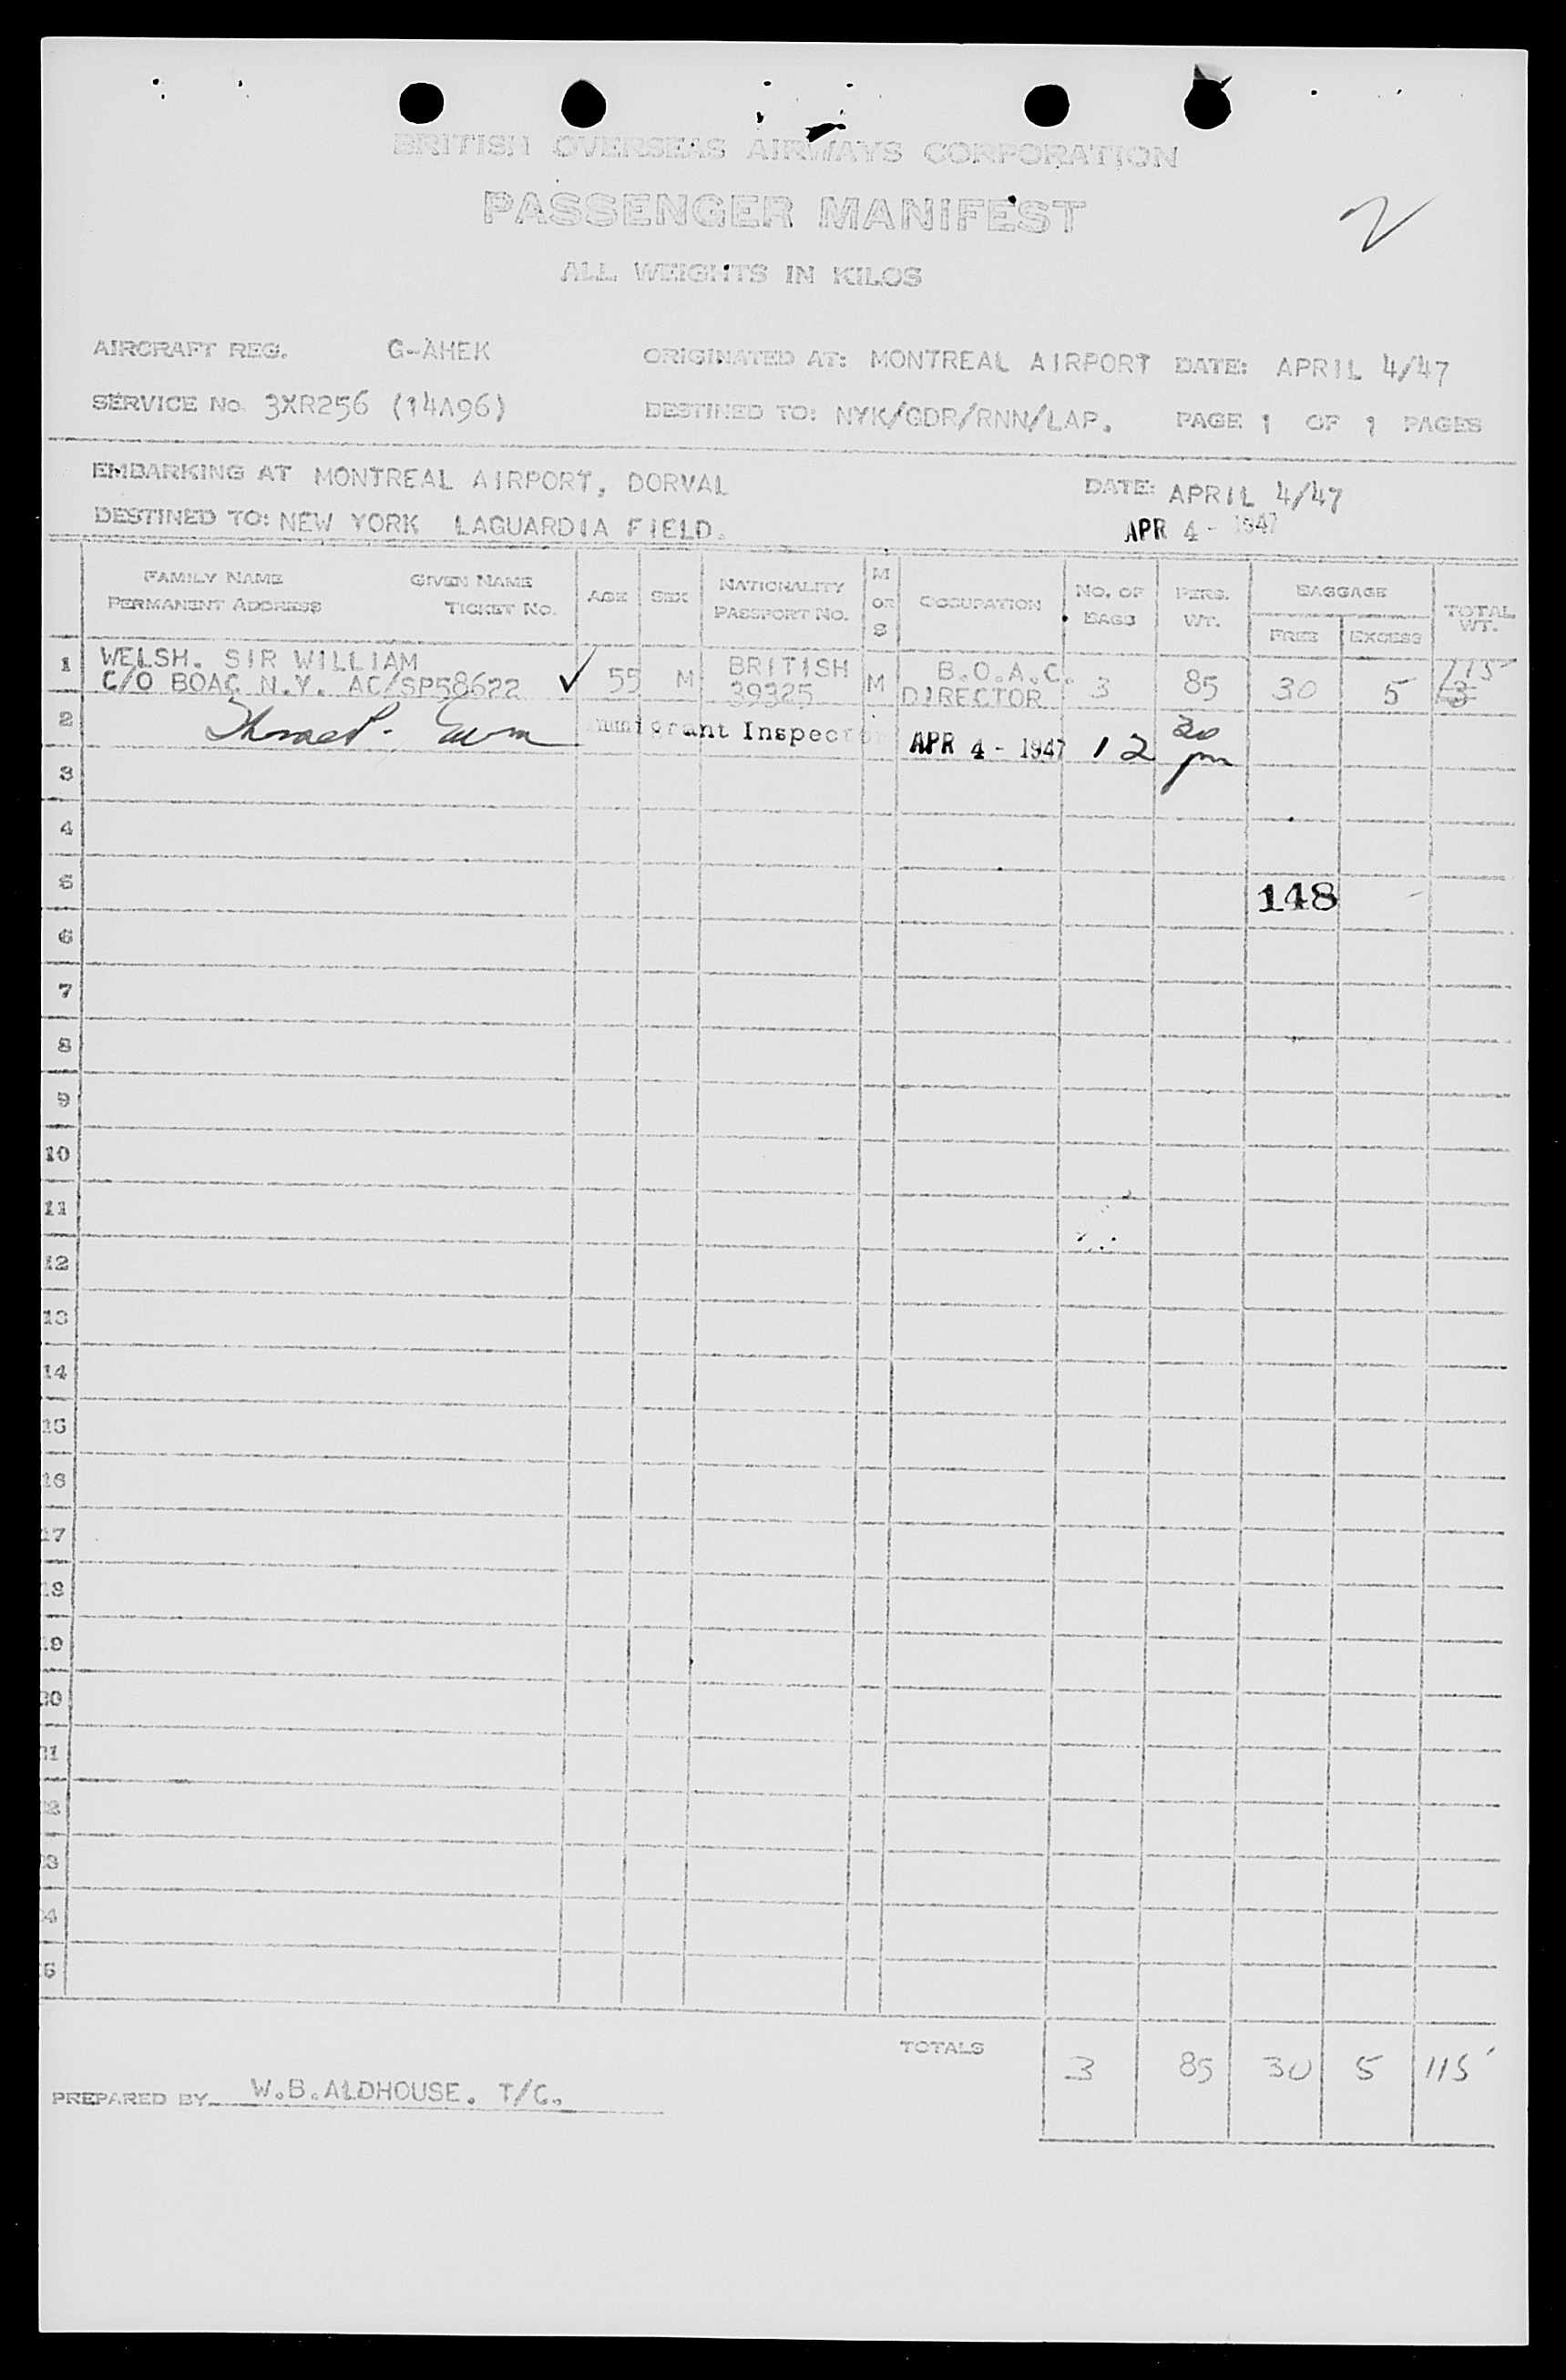 BRITISH OVERSEAS AIRWAYS CORPORATION
PASSENGER MANIFEST
2
ALL WEIGHTS IN KILOS
AIRCRAFT REG. G-AHEK ORIGINATED AT: MONTREAL AIRPORT DATE: APRIL 4/47
SERVICE No. 3XR256 (14A96) DESTINED TO: NYK/GDR/RNN/LAP. PAGE 1 OF 1 PAGES
EMBARKING AT MONTREAL AIRPORT, DORVAL DATE: APRIL 4/47
DESTINED TO: NEW YORK LAGUARDIA FIELD. APR 4 - 1947
FAMILY NAME GIVEN NAME AGE SEX NATIONALITY M OR S OCCUPATION NO. OF BAGS PERS. WT. BAGGAGE TOTAL WT.
PERMANENT ADDRESS TICKET NO. PASSPORT NO. FREE EXCESS
1 WELSH. SIR WILLIAM ✓ 55 M BRITISH M B.O.A.C. 3 85 30 5 115
C/O BOAC N.Y. AC/SP58622 39325 DIRECTOR
2 Immigrant Inspector APR 4 - 1947 12 30 pm
3
4
5 148
6
7
8
9
10
11
12
13
14
15
16
17
18
19
20
21
22
23
24
25
TOTALS 3 85 30 5 115
PREPARED BY W.B.ALDHOUSE. T/C.